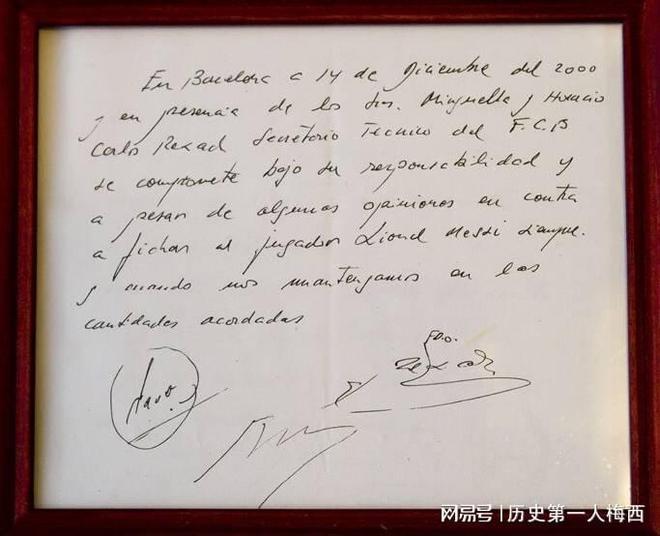 En Barcelona a 14 de Diciembre del 2000
y en presencia de los Sres. Minguella y Horacio
Carlos Rexach Secretario Técnico del F.C.B
se compromete bajo su responsabilidad y
a pesar de algunas opiniones en contra
a fichar al jugador Lionel Messi siempre
y cuando nos mantengamos en las
cantidades acordadas
FDO.
网易号 | 历史第一人梅西